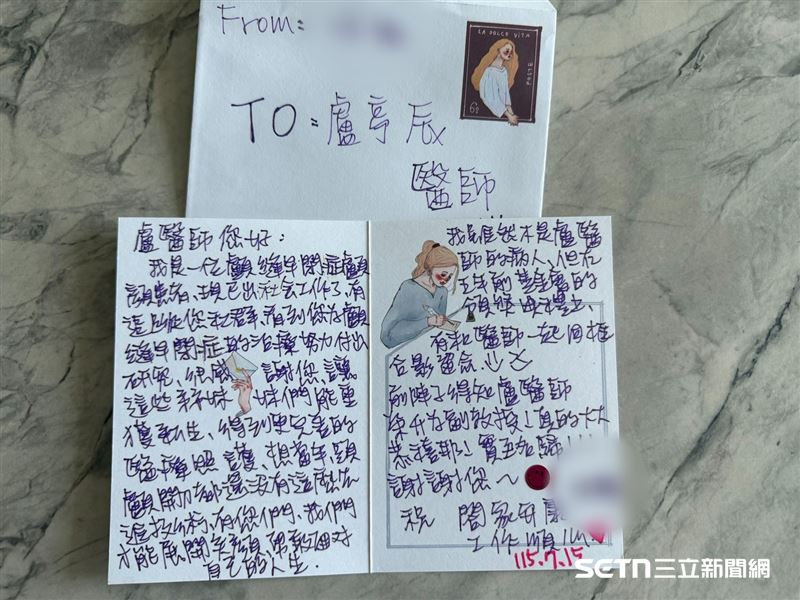 From:
LA DOLCE VITA
TO:盧亭辰
醫師
盧醫師您好:
我是一位顱縫早閉症顱
顏患者、現已出社會工作了,有
您社群、看到您為顱
縫早閉症的治療努力付出
研究、很感謝您、讓
這些弟妹妹們能重
獲新生、得到更完善的
醫療照護、想當年、顱
顏開刀都還沒有這麼先
進技術、有您們、我們
才能展開笑顏、勇敢面對
自己的人生.
我雖然不是盧醫
師的病人、但在
五年前 基金會的
有和醫師一起同框
合影留念.
前陣子得知盧醫師
榮升為副教授!真的大大
恭喜耶!實至名歸!!!
謝謝您~
祝 闔家平
工作順
115.7.15
SETN三立新聞網